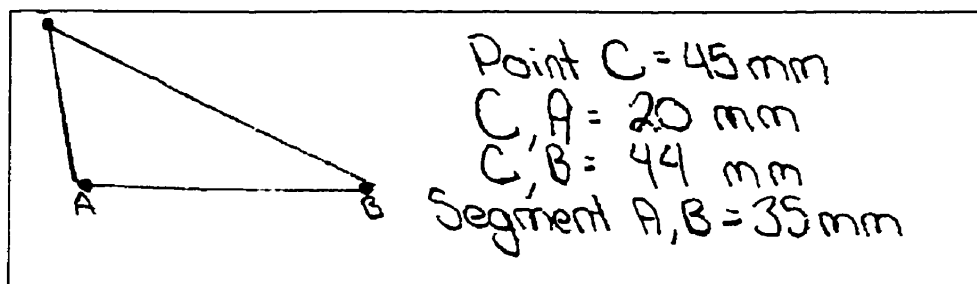 Point C = 45 mm
C, A = 20 mm
C, B = 44 mm
Segment A, B = 35 mm
A
B